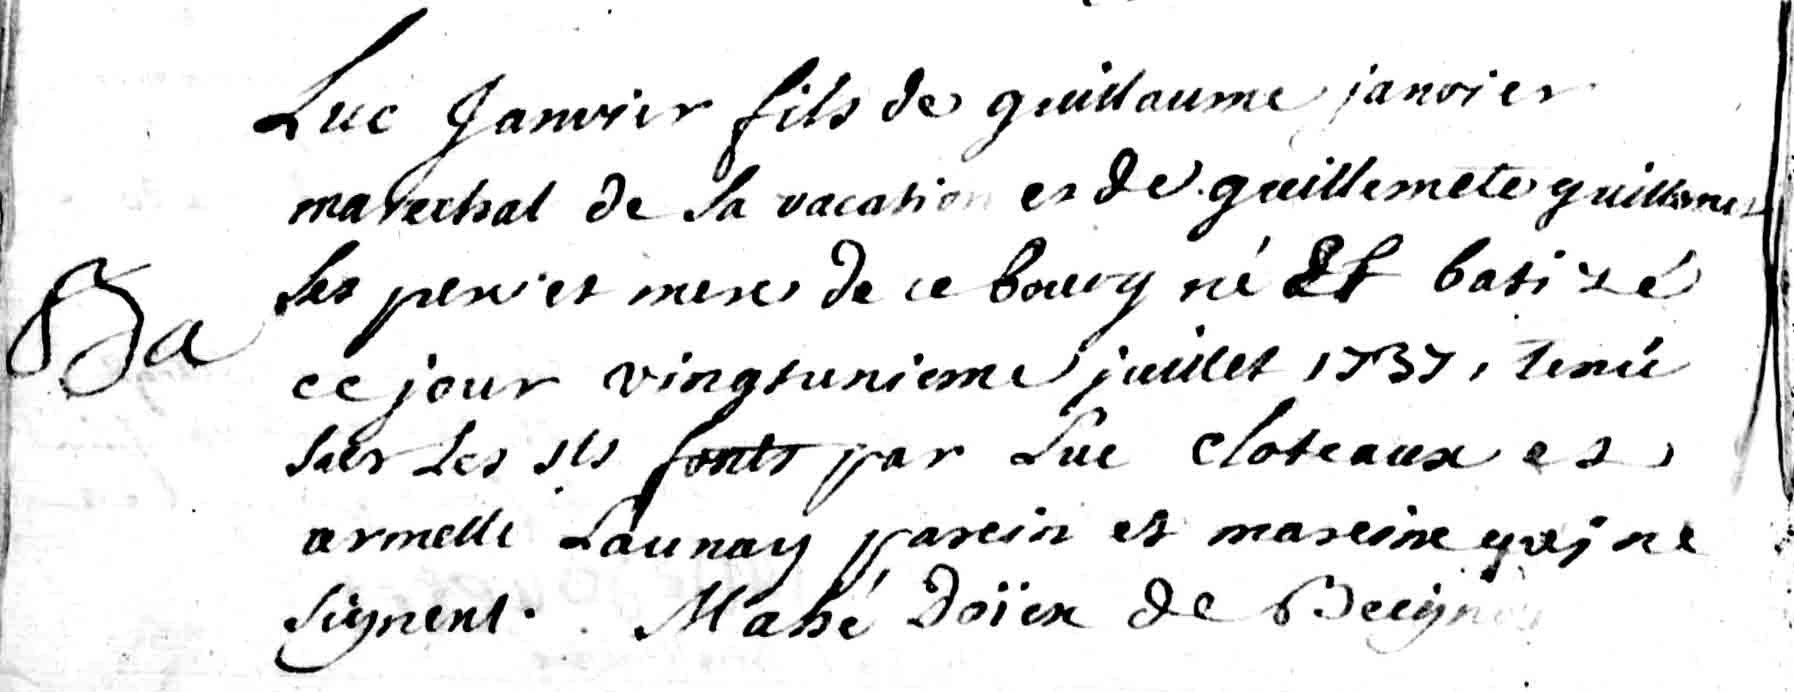 Luc Janvier fils de guillaume janvier
marechal de sa vacation et de guillemete guillemet
ses pere et mere de ce bourg né Et batizé
ce jour vingtunieme juillet 1737, tenu
Ba
sur les sts fonts par Luc Cloteaux et
armelle Launay parein et mareine qui ne
signent. Mahé Doïen de Beignon